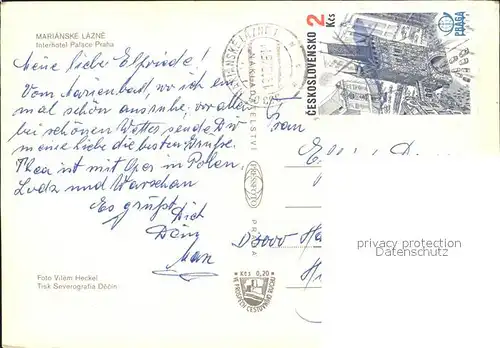 MARIÁNSKÉ LÁZNĚ
Interhotel Palace Praha
Meine liebe Elfriede!
Vom Marienbad, wo ich ein
mal schön ausruhe, vor allem
bei schönen Wetter sende Dir
meine liebe die besten Grüße.
Thea ist mit Opa in Polen,
Lodz und Warschau
Es grüßt Dich
Max
Foto Vilém Heckel
Tisk Severografia Děčín
MARIÁNSKÉ LÁZNĚ 1
NAKLADATELSTVÍ
PRESSFOTO
PRAHA
Kčs 0,20
ČESKOSLOVENSKO
2 Kčs
PRAGA
Frau
privacy protection
Datenschutz